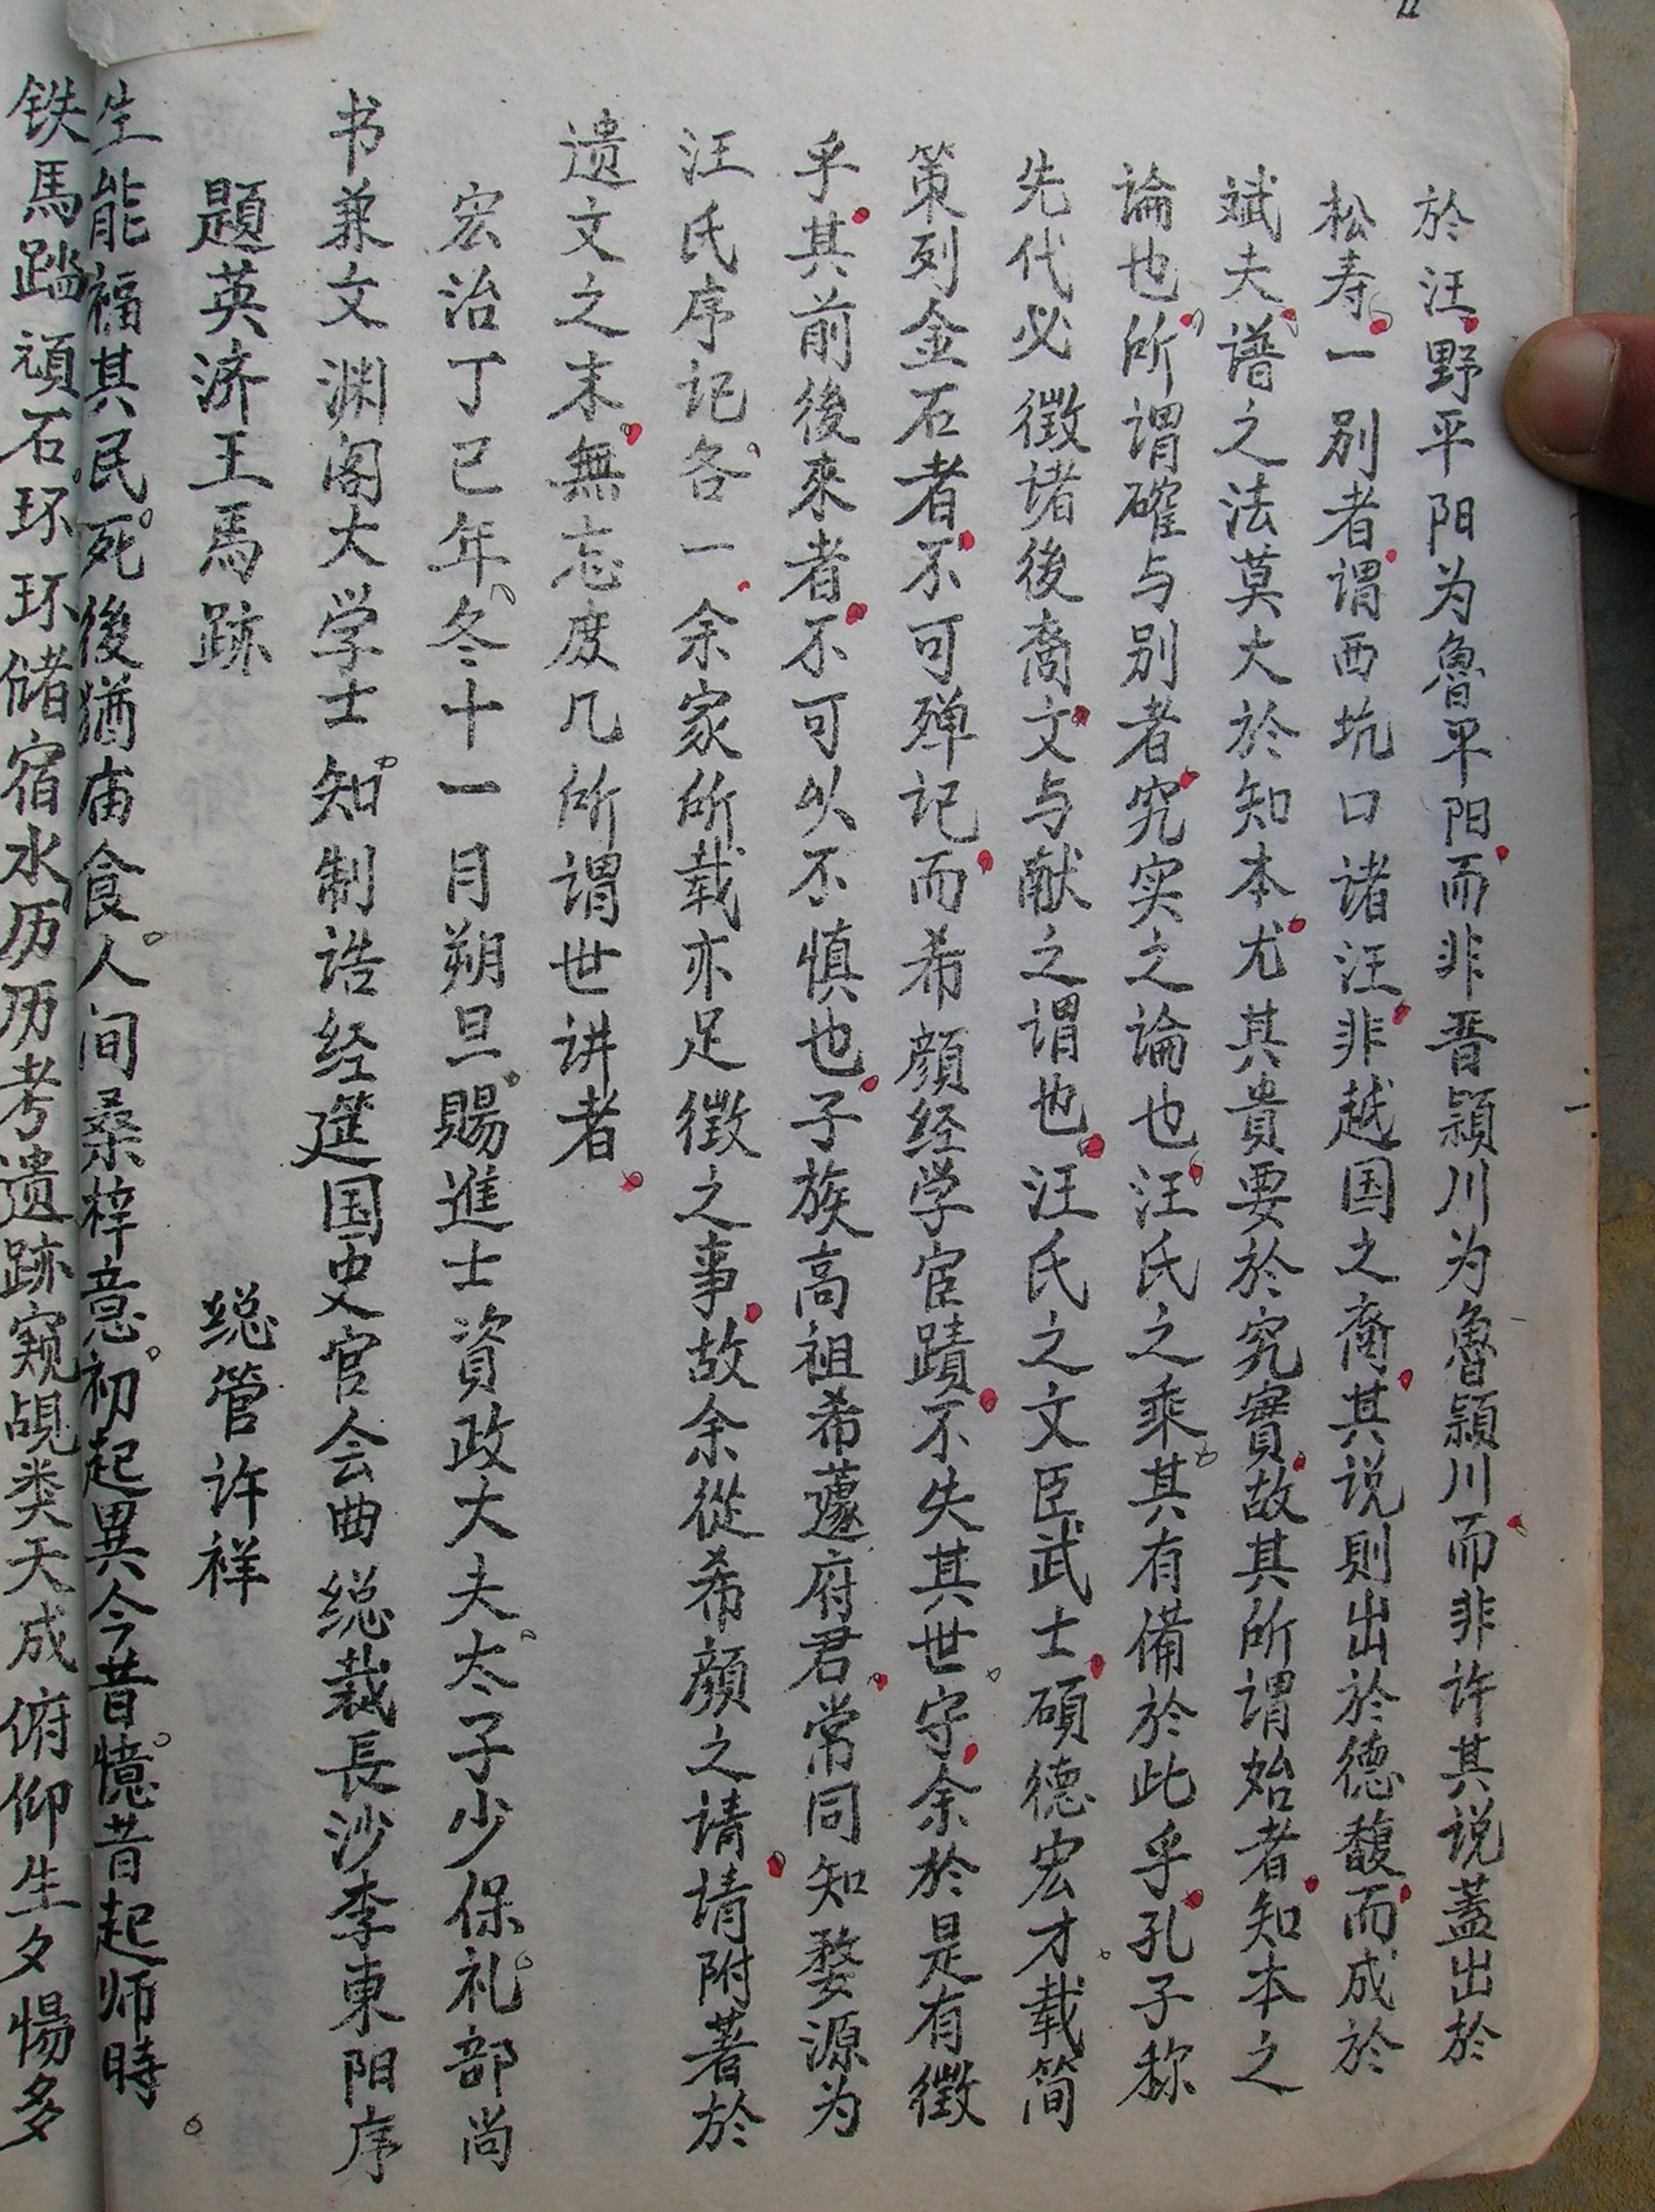 於汪野平阳为魯平阳而非晋潁川为魯潁川而非许其说蓋出於
松寿一别者谓西坑口诸汪非越国之裔其说則出於德馥而成於
斌夫谱之法莫大於知本尤其貴要於究實故其所谓始者知本之
論也所谓確与别者究实之論也汪氏之乘其有備於此乎孔子称
先代必徵堵後裔文与献之谓也汪氏之文臣武士碩德宏才载简
策列金石者不可殫记而希顔经学宦蹟不失其世守余於是有徵
乎其前後來者不可以不慎也子族高祖希蘧府君常同知婺源为
汪氏序记各一余家所载亦足徵之事故余從希顔之请请附著於
遗文之末無忘庶几所谓世讲者
宏治丁已年冬十一月朔旦賜進士資政大夫太子少保礼部尚
书兼文渊阁大学士知制诰经筵国史官会曲総裁長沙李東阳序
題英济王馬跡
総管许祥
生能福其民死後猶庙食人间桑梓意初起異今昔憶昔起师時
铁馬踏頑石环环储宿水历历考遗跡窥觇类天成俯仰生夕惕多